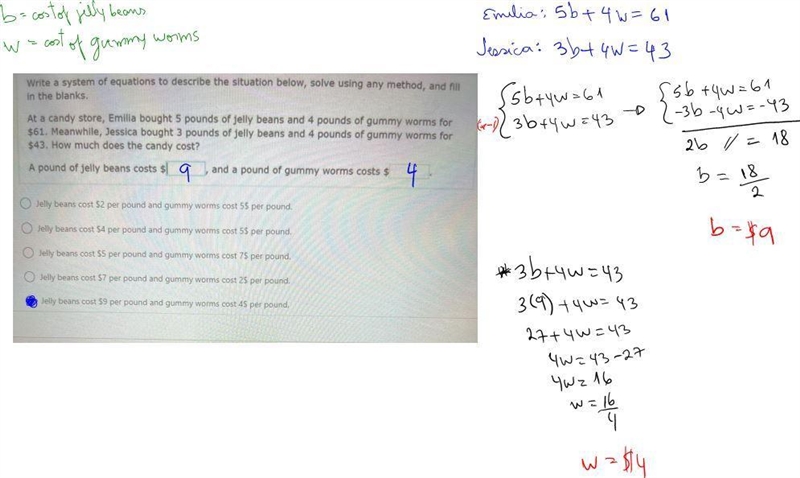 b = cost of jelly beans
w = cost of gummy worms
Emilia: 5b + 4w = 61
Jessica: 3b + 4w = 43
Write a system of equations to describe the situation below, solve using any method, and fill
in the blanks.
At a candy store, Emilia bought 5 pounds of jelly beans and 4 pounds of gummy worms for
$61. Meanwhile, Jessica bought 3 pounds of jelly beans and 4 pounds of gummy worms for
$43. How much does the candy cost?
A pound of jelly beans costs $ 9 , and a pound of gummy worms costs $ 4 .
Jelly beans cost $2 per pound and gummy worms cost 5$ per pound.
Jelly beans cost $4 per pound and gummy worms cost 5$ per pound.
Jelly beans cost $5 per pound and gummy worms cost 7$ per pound.
Jelly beans cost $7 per pound and gummy worms cost 2$ per pound.
Jelly beans cost $9 per pound and gummy worms cost 4$ per pound.
5b + 4w = 61
3b + 4w = 43
5b + 4w = 61
-3b - 4w = -43
2b // = 18
b = 18
2
b = $9
* 3b + 4w = 43
3(9) + 4w = 43
27 + 4w = 43
4w = 43 - 27
4w = 16
w = 16
4
w = $4